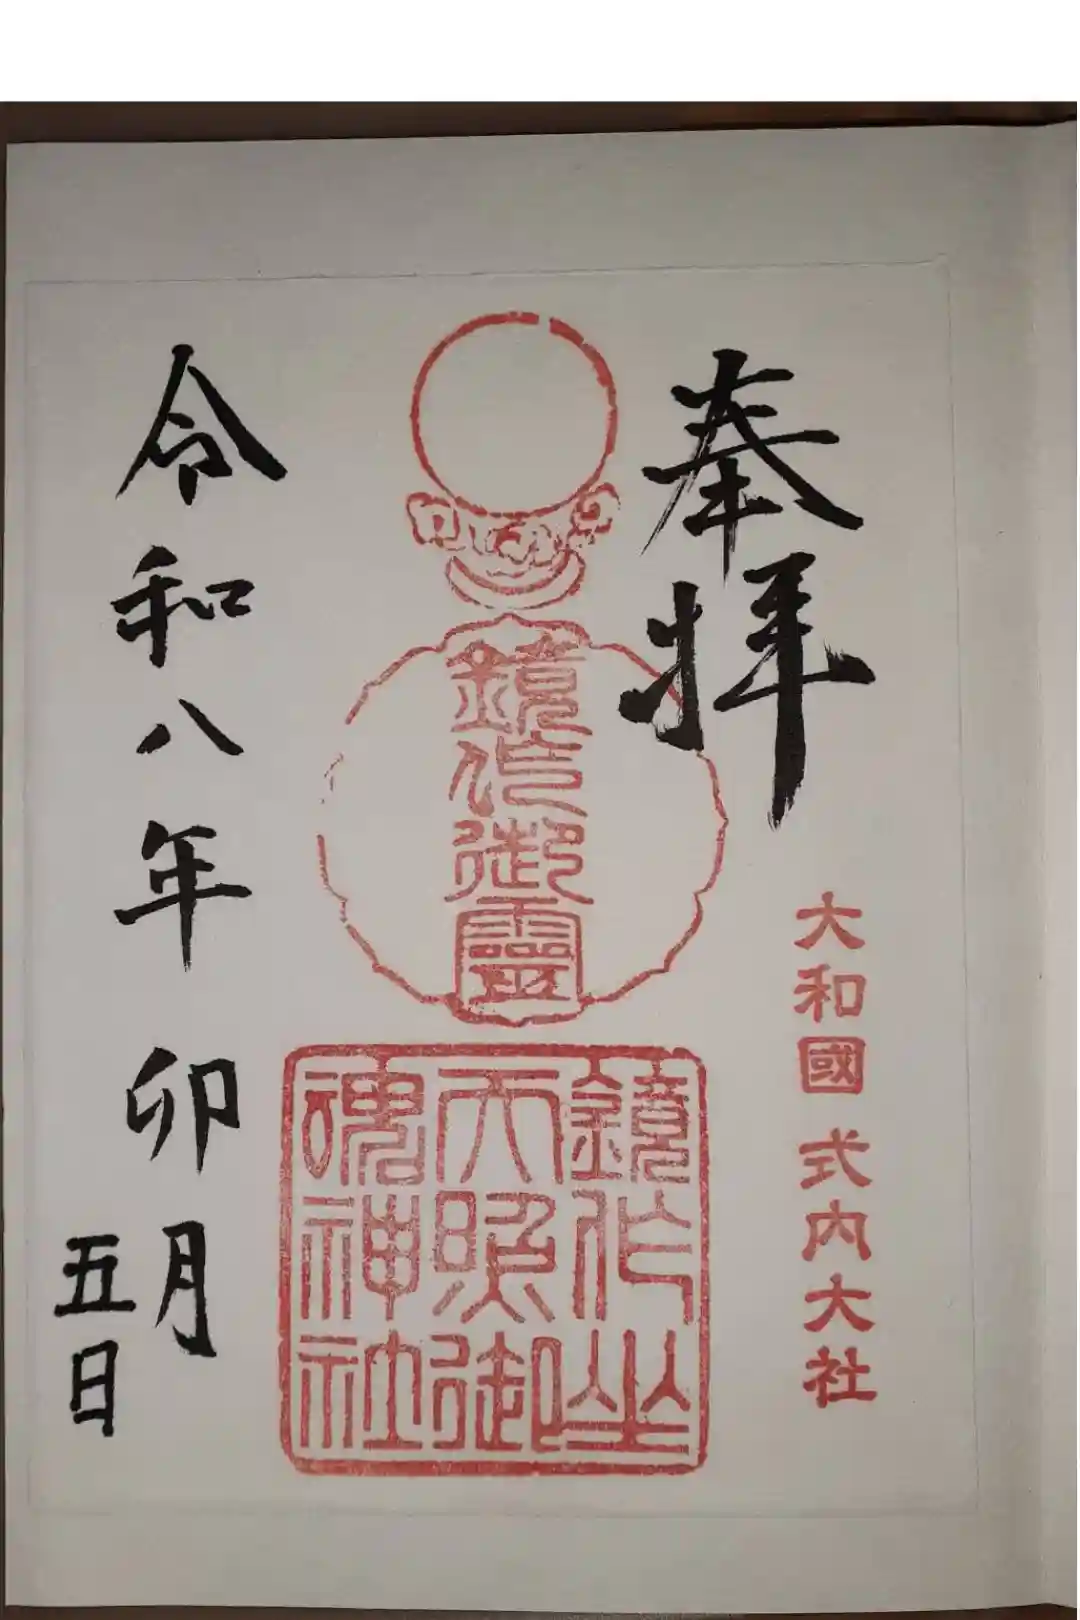 奉拝
大和國 式内大社
鏡作御靈
鏡作坐
天照御
魂神社
令和八年 卯月
五日